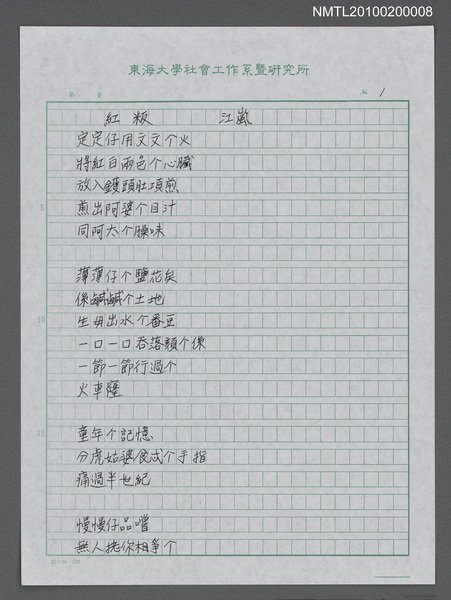 NMTL20100200008
東海大學社會工作系暨研究所
第 頁
№ 1
紅粄 江嵐
定定仔用文文个火
將紅白兩色个心臟
放入鑊頭肚項煎
5
煎出阿婆个目汁
同阿太个臊味
薄薄仔个鹽花矣
像鹹鹹个土地
10
生毋出水个番豆
一口一口吞落頷个像
一節一節行過个
火車隧
15
童年个記憶
分虎姑婆食忒个手指
痛過半世紀
慢慢仔品嚐
無人摎你相爭个